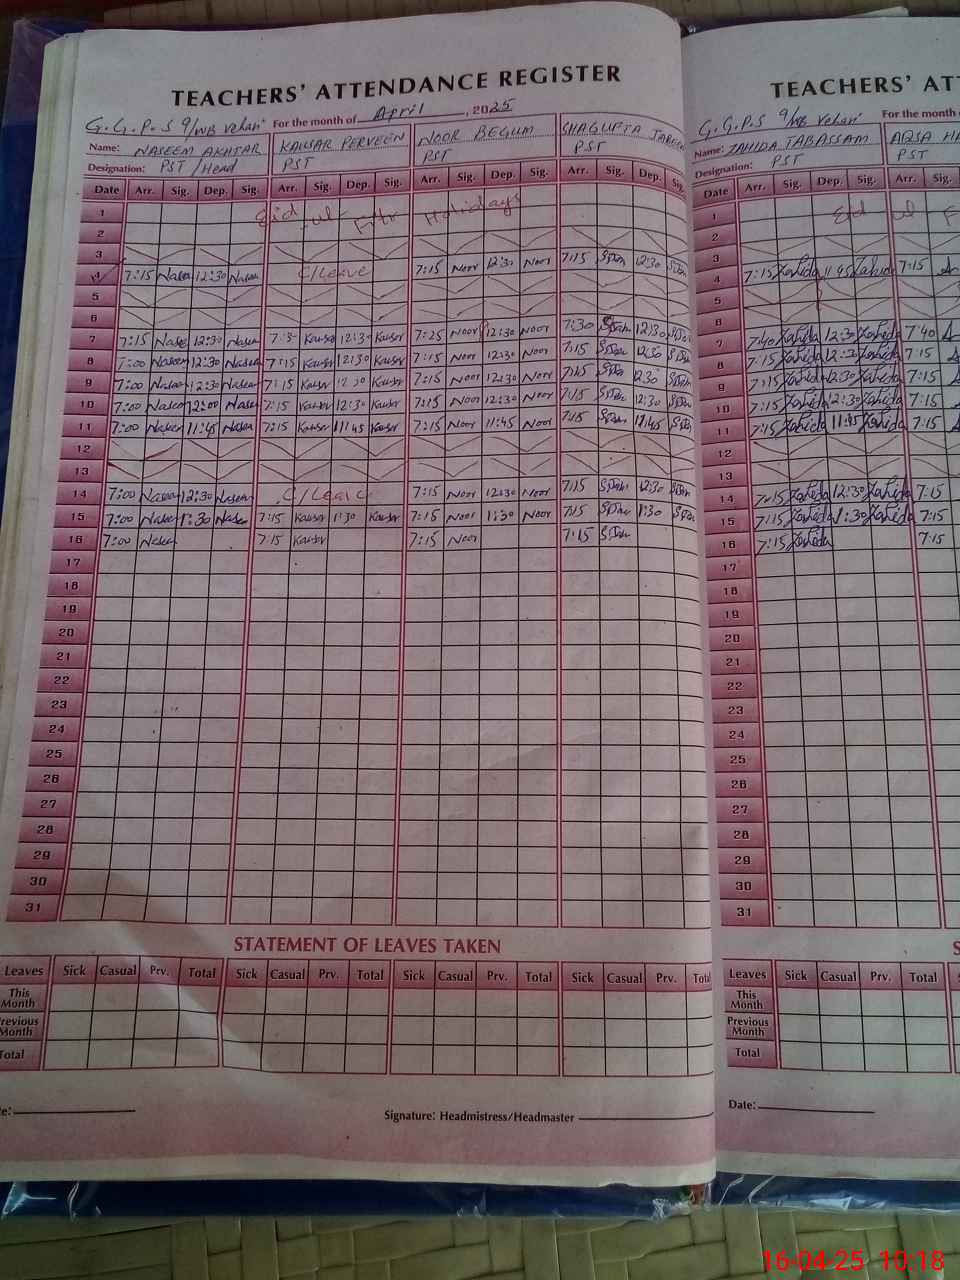 TEACHERS' ATTENDANCE REGISTER
G.G.P.S 9/WB Vehari For the month of April, 2025
Name: NASEEM AKHTAR KAUSAR PERVEEN NOOR BEGUM SHAGUFTA
Designation: PST/Head PST PST PST
Date Arr. Sig. Dep. Sig. Arr. Sig. Dep. Sig. Arr. Sig. Dep. Sig. Arr. Sig. Dep. Sig.
1 Eid -ul- Fitr Holidays
2
3
4 7:15 Naseem 12:30 Naseem C/Leave 7:15 Noor 12:30 Noor 7:15 12:30
5
6
7 7:15 Naseem 12:30 Naseem 7:30 Kausar 12:30 Kausar 7:25 Noor 12:30 Noor 7:30 12:30
8 7:00 Naseem 12:30 Naseem 7:15 Kausar 12:30 Kausar 7:15 Noor 12:30 Noor 7:15 12:30
9 7:00 Naseem 12:30 Naseem 7:15 Kausar 12:30 Kausar 7:15 Noor 12:30 Noor 7:15 12:30
10 7:00 Naseem 12:00 Naseem 7:15 Kausar 12:30 Kausar 7:15 Noor 12:30 Noor 7:15 12:30
11 7:00 Naseem 11:45 Naseem 7:15 Kausar 11:45 Kausar 7:15 Noor 11:45 Noor 7:15 11:45
12
13
14 7:00 Naseem 12:30 Naseem C/Leave 7:15 Noor 12:30 Noor 7:15 12:30
15 7:00 Naseem 1:30 Naseem 7:15 Kausar 1:30 Kausar 7:15 Noor 1:30 Noor 7:15 1:30
16 7:00 Naseem 7:15 Kausar 7:15 Noor 7:15
17
18
19
20
21
22
23
24
25
26
27
28
29
30
31
STATEMENT OF LEAVES TAKEN
Leaves Sick Casual Prv. Total Sick Casual Prv. Total Sick Casual Prv. Total Sick Casual Prv. Total
This Month
Previous Month
Total
Signature: Headmistress/Headmaster
TEACHERS'
G.G.P.S 9/WB Vehari For the month
Name: ZAHIDA TABASSAM AQSA
Designation: PST PST
Date Arr. Sig. Dep. Sig. Arr. Sig.
1 Eid ul
2
3 7:15 Zahida 11:45 Zahida 7:15
4
5
6
7 7:40 Zahida 12:30 Zahida 7:40
8 7:15 Zahida 12:30 Zahida 7:15
9 7:15 Zahida 12:30 Zahida 7:15
10 7:15 Zahida 12:30 Zahida 7:15
11 7:15 Zahida 11:45 Zahida 7:15
12
13
14 7:15 Zahida 12:30 Zahida 7:15
15 7:15 Zahida 1:30 Zahida 7:15
16 7:15 Zahida 7:15
17
18
19
20
21
22
23
24
25
26
27
28
29
30
31
Leaves Sick Casual Prv. Total
This Month
Previous Month
Total
Date:
16-04-25 10:18